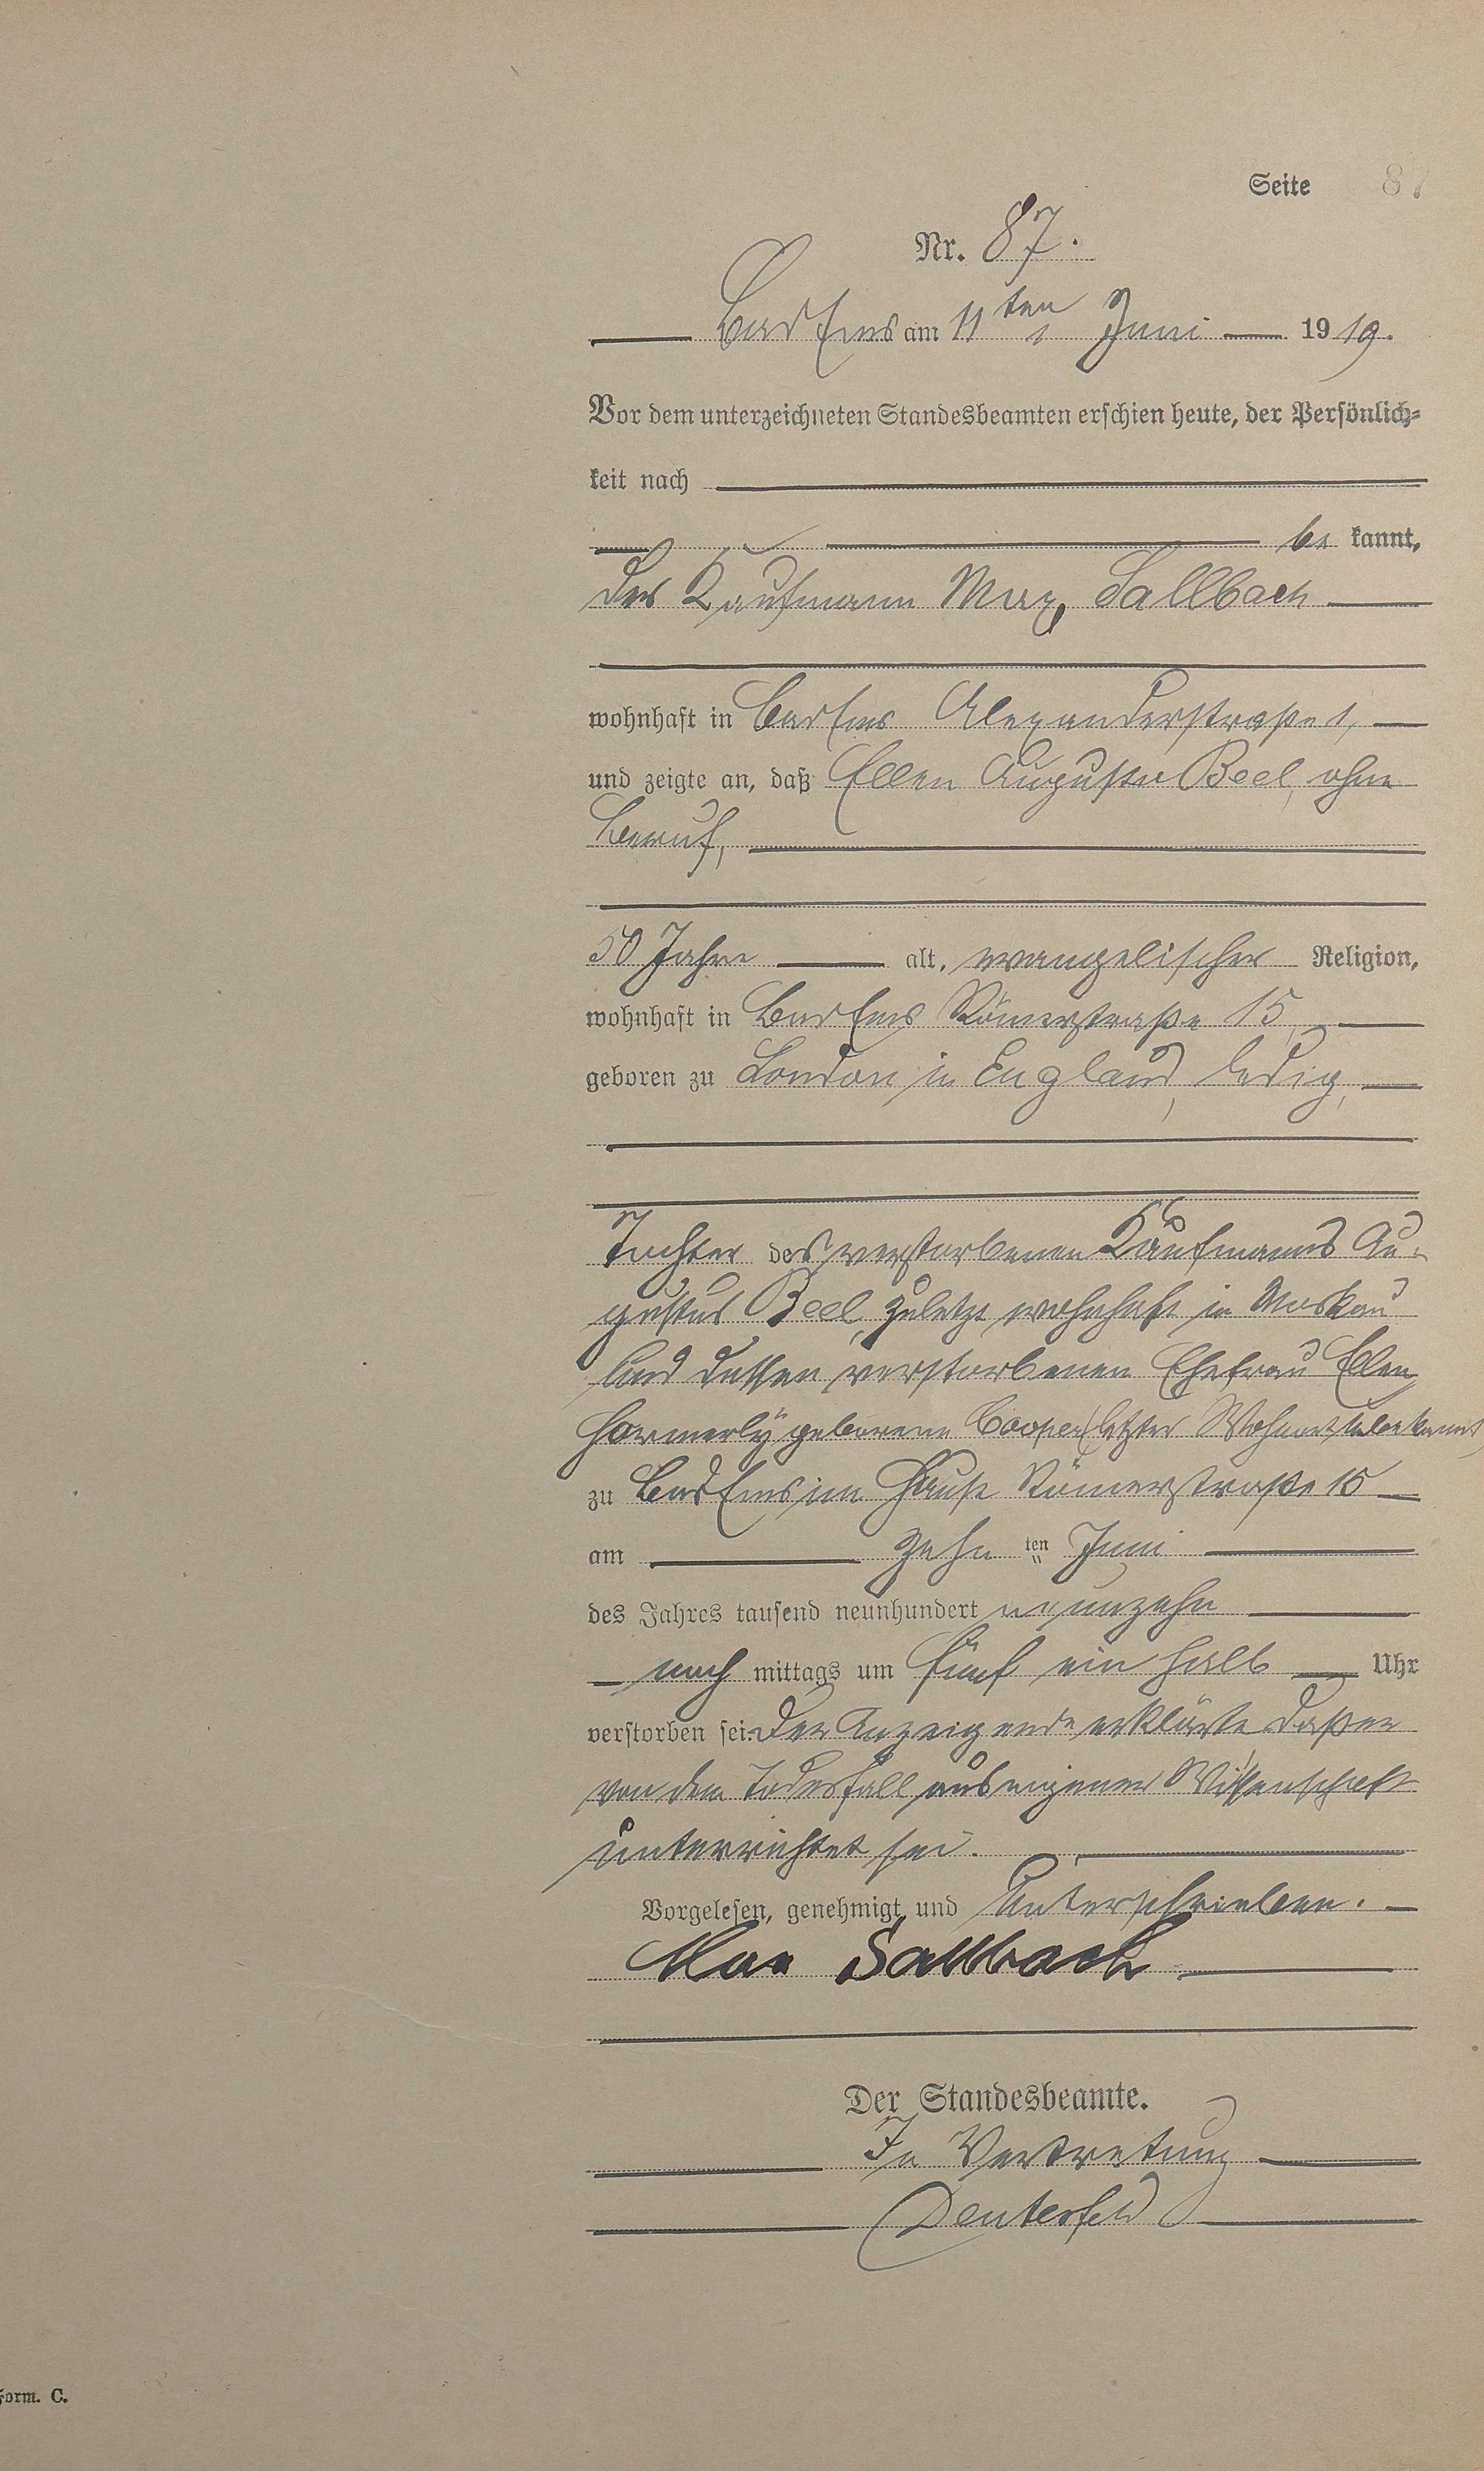 Seite 87
Nr. 87.
Bad Ems am 11ten Juni 1919.
Vor dem unterzeichneten Standesbeamten erschien heute, der Persönlich=
keit nach
be kannt,
der Kaufmann Max Sallbach
wohnhaft in Bad Ems Alexanderstraße 1,
und zeigte an, daß Ellen Auguste Beel, ohne
Beruf,
50 Jahre alt, evangelischer Religion,
wohnhaft in Bad Ems Römerstraße 15,
geboren zu London in England, ledig,
Tochter des verstorbenen Kaufmanns Au-
gustus Beel, zuletzt wohnhaft in Moskau
und dessen verstorbenen Ehefrau Ellen
geborene Cooper (letzter Wohnort unbekannt)
zu Bad Ems im Hause Römerstraße 15
am zehn ten Juni
des Jahres tausend neunhundert neunzehn
nach mittags um fünf ein halb Uhr
verstorben sei. Der Anzeigende erklärte, daß er
von dem Todesfall aus eigener Wissenschaft
unterrichtet sei.
Vorgelesen, genehmigt und unterschrieben.
Max Sallbach
Der Standesbeamte.
In Vertretung
Form. C.